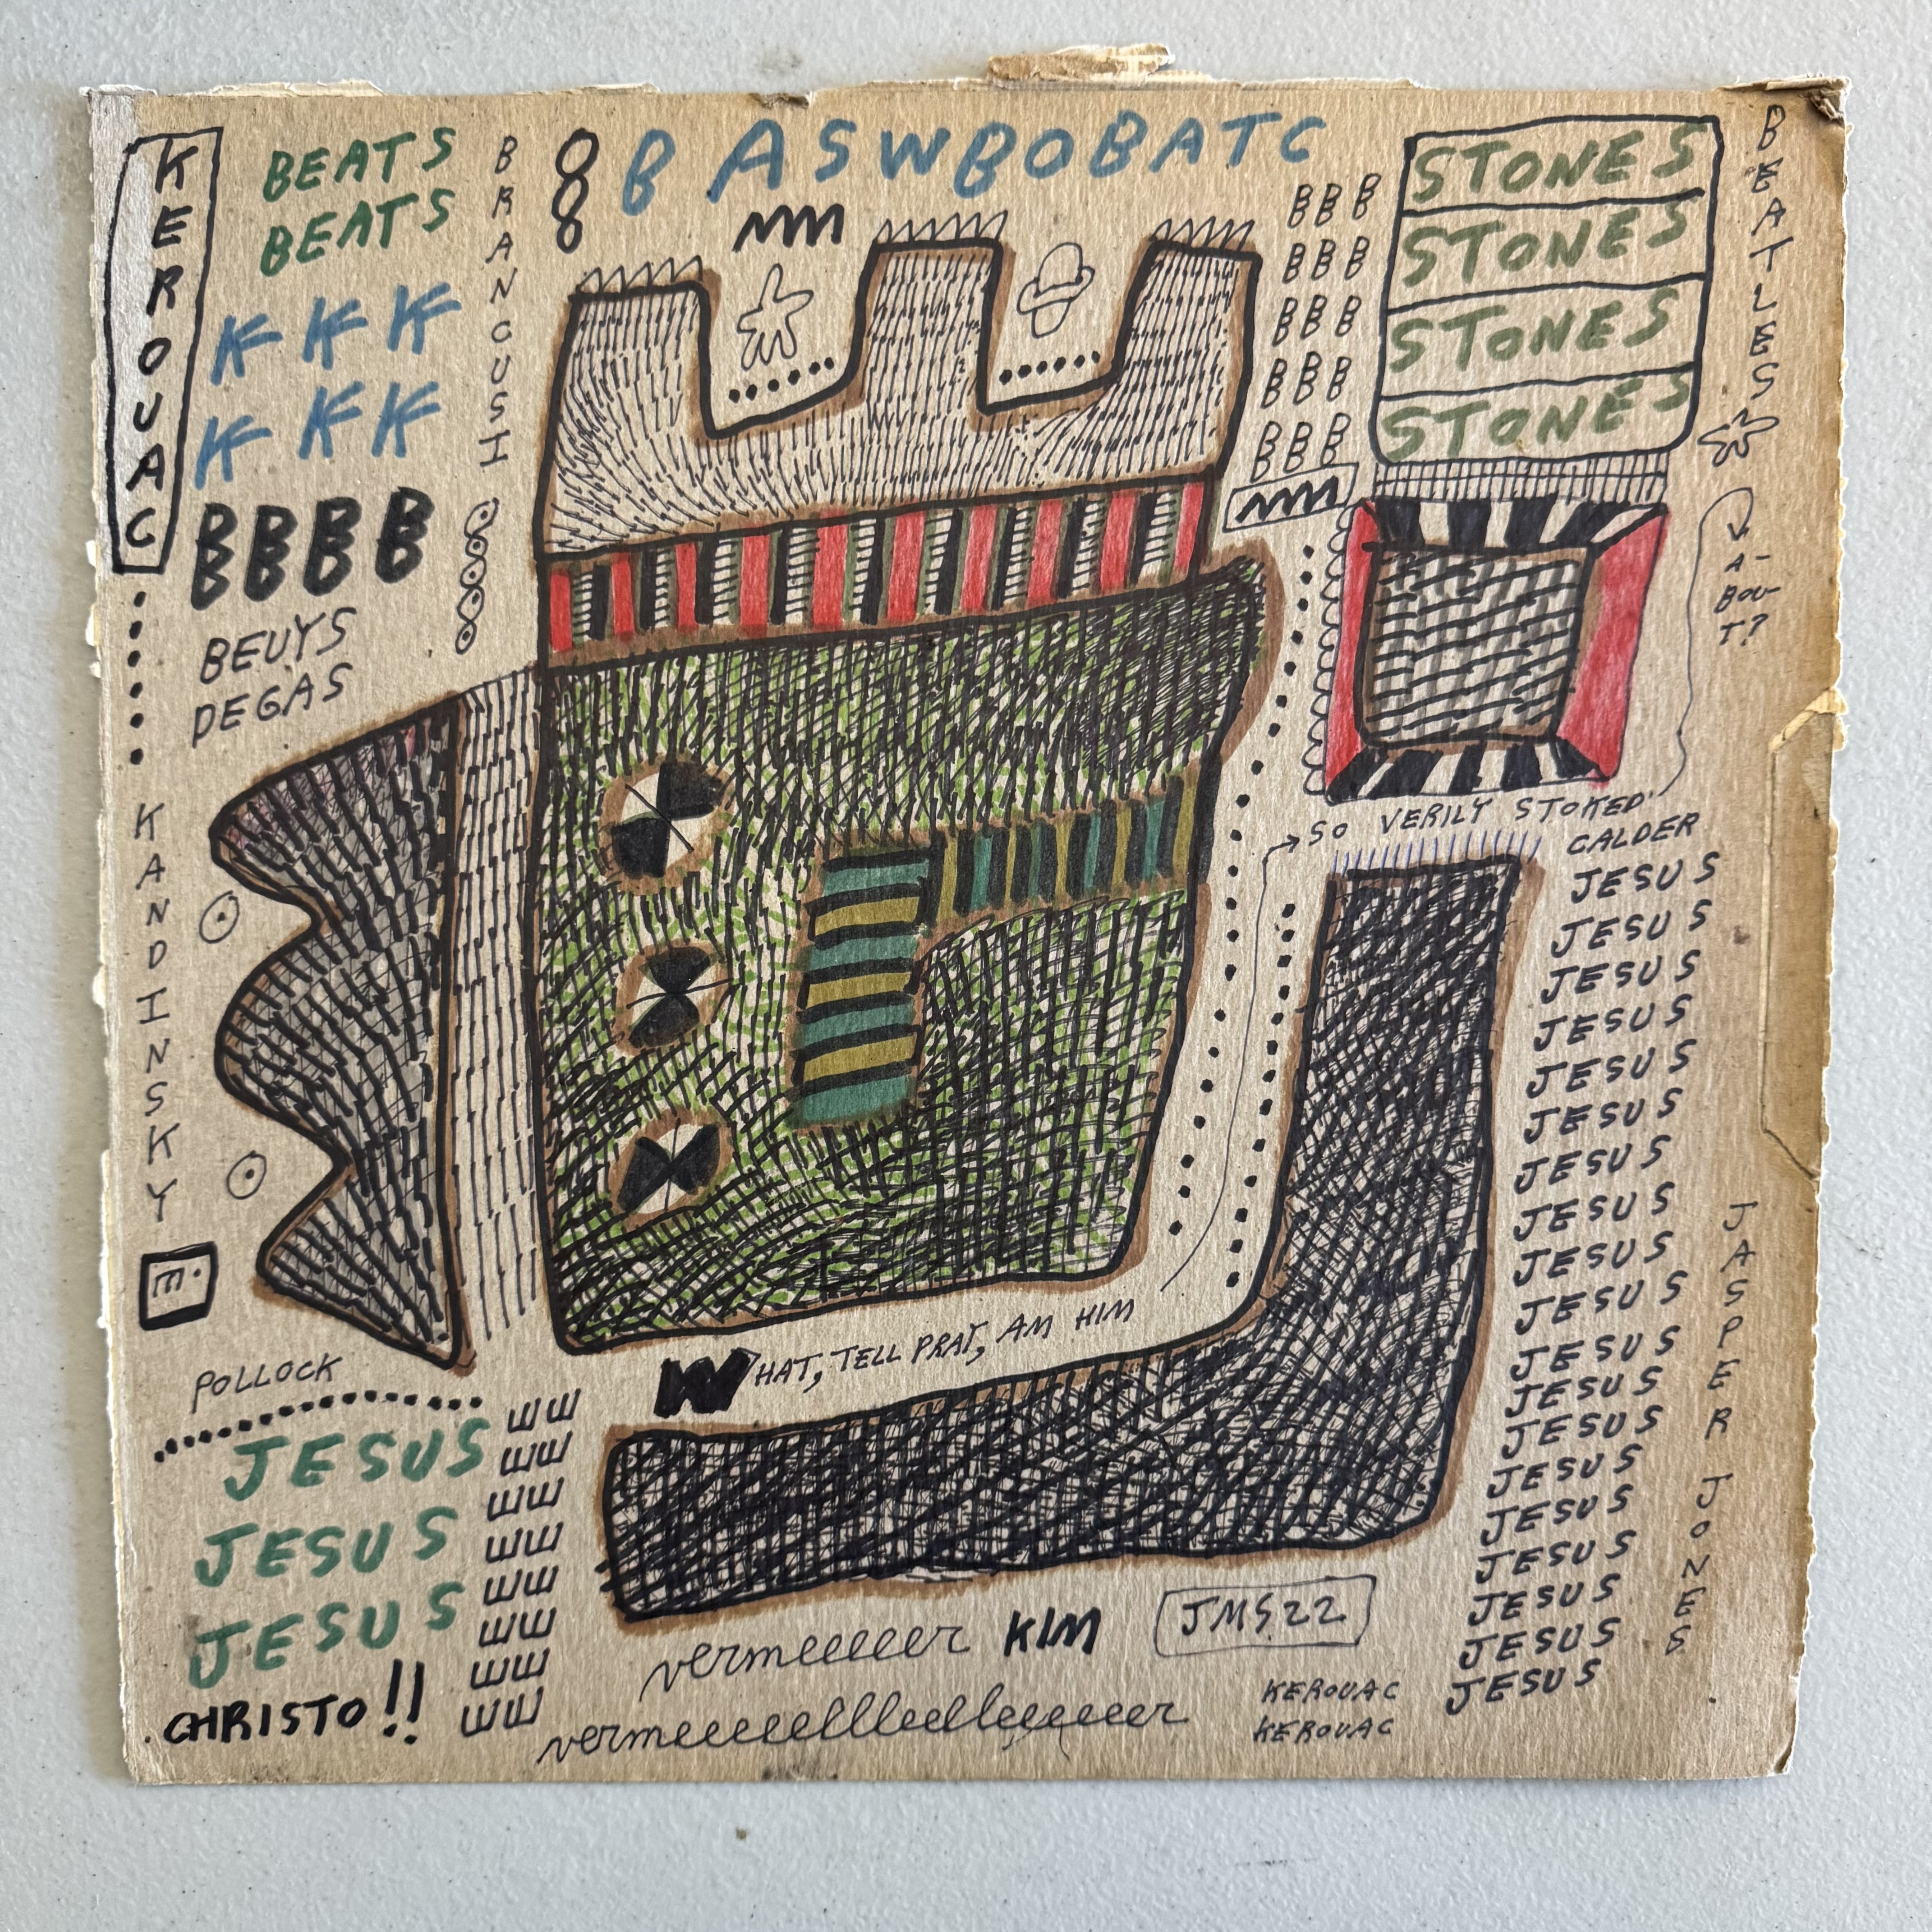 KEROUAC
BEATS
BEATS
KKK
KKK
BBBB
BEUYS
DEGAS
BRANCUSI
B ASWBOBATC
BBB
BBB
BBB
BBB
BBB
STONES
STONES
STONES
STONES
BEATLES
A-
BOU-
T?
SO VERILY STOKED
CALDER
JESUS
JESUS
JESUS
JESUS
JESUS
JESUS
JESUS
JESUS
JESUS
JESUS
JESUS
JESUS
JESUS
JESUS
JESUS
JESUS
JESUS
JESUS
JESUS
JASPER JONES
KANDINSKY
POLLOCK
WHAT, TELL PRAT, AM HIM
JESUS
JESUS
JESUS
CHRISTO!!
vermeeeeer KIM
JMS22
vermeeeeelllleelleeeeeer
KEROUAC
KEROUAC